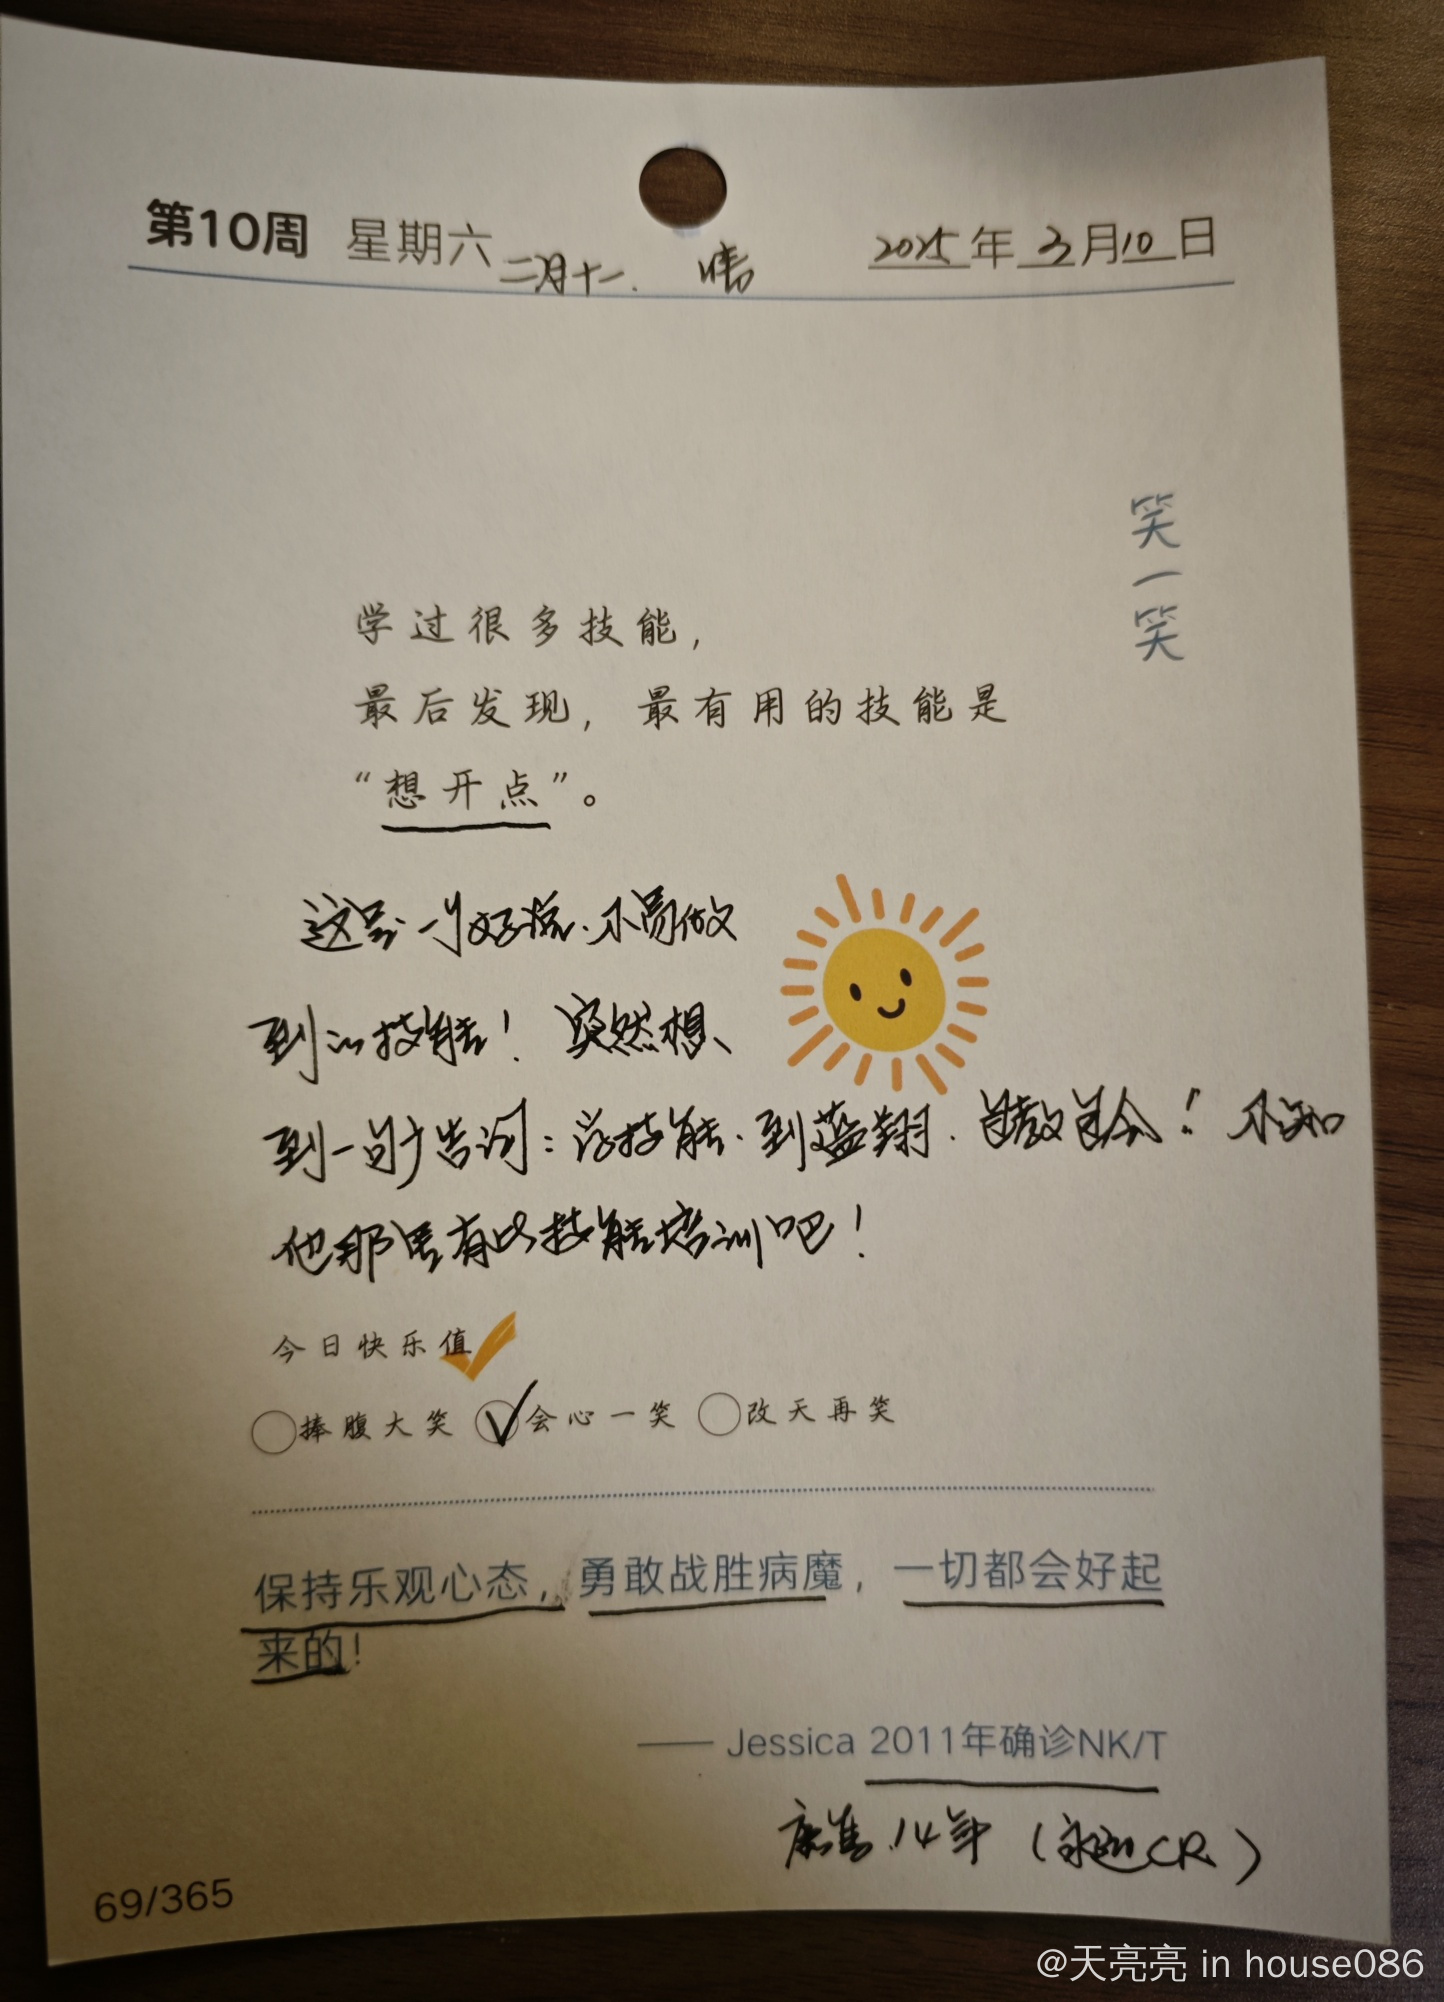 第10周 星期六 二月十一. 晴 2025年3月10日
笑一笑
学过很多技能，
最后发现，最有用的技能是
“想开点”。
这是一个好说.不易做
到的技能！突然想
到一句广告词：学技能.到蓝翔.包教包会！不知
他那里有此技能培训吧！
今日快乐值
捧腹大笑 会心一笑 改天再笑
保持乐观心态，勇敢战胜病魔，一切都会好起
来的！
—— Jessica 2011年确诊NK/T
14年（永远CR）
69/365
@天亮亮 in house086